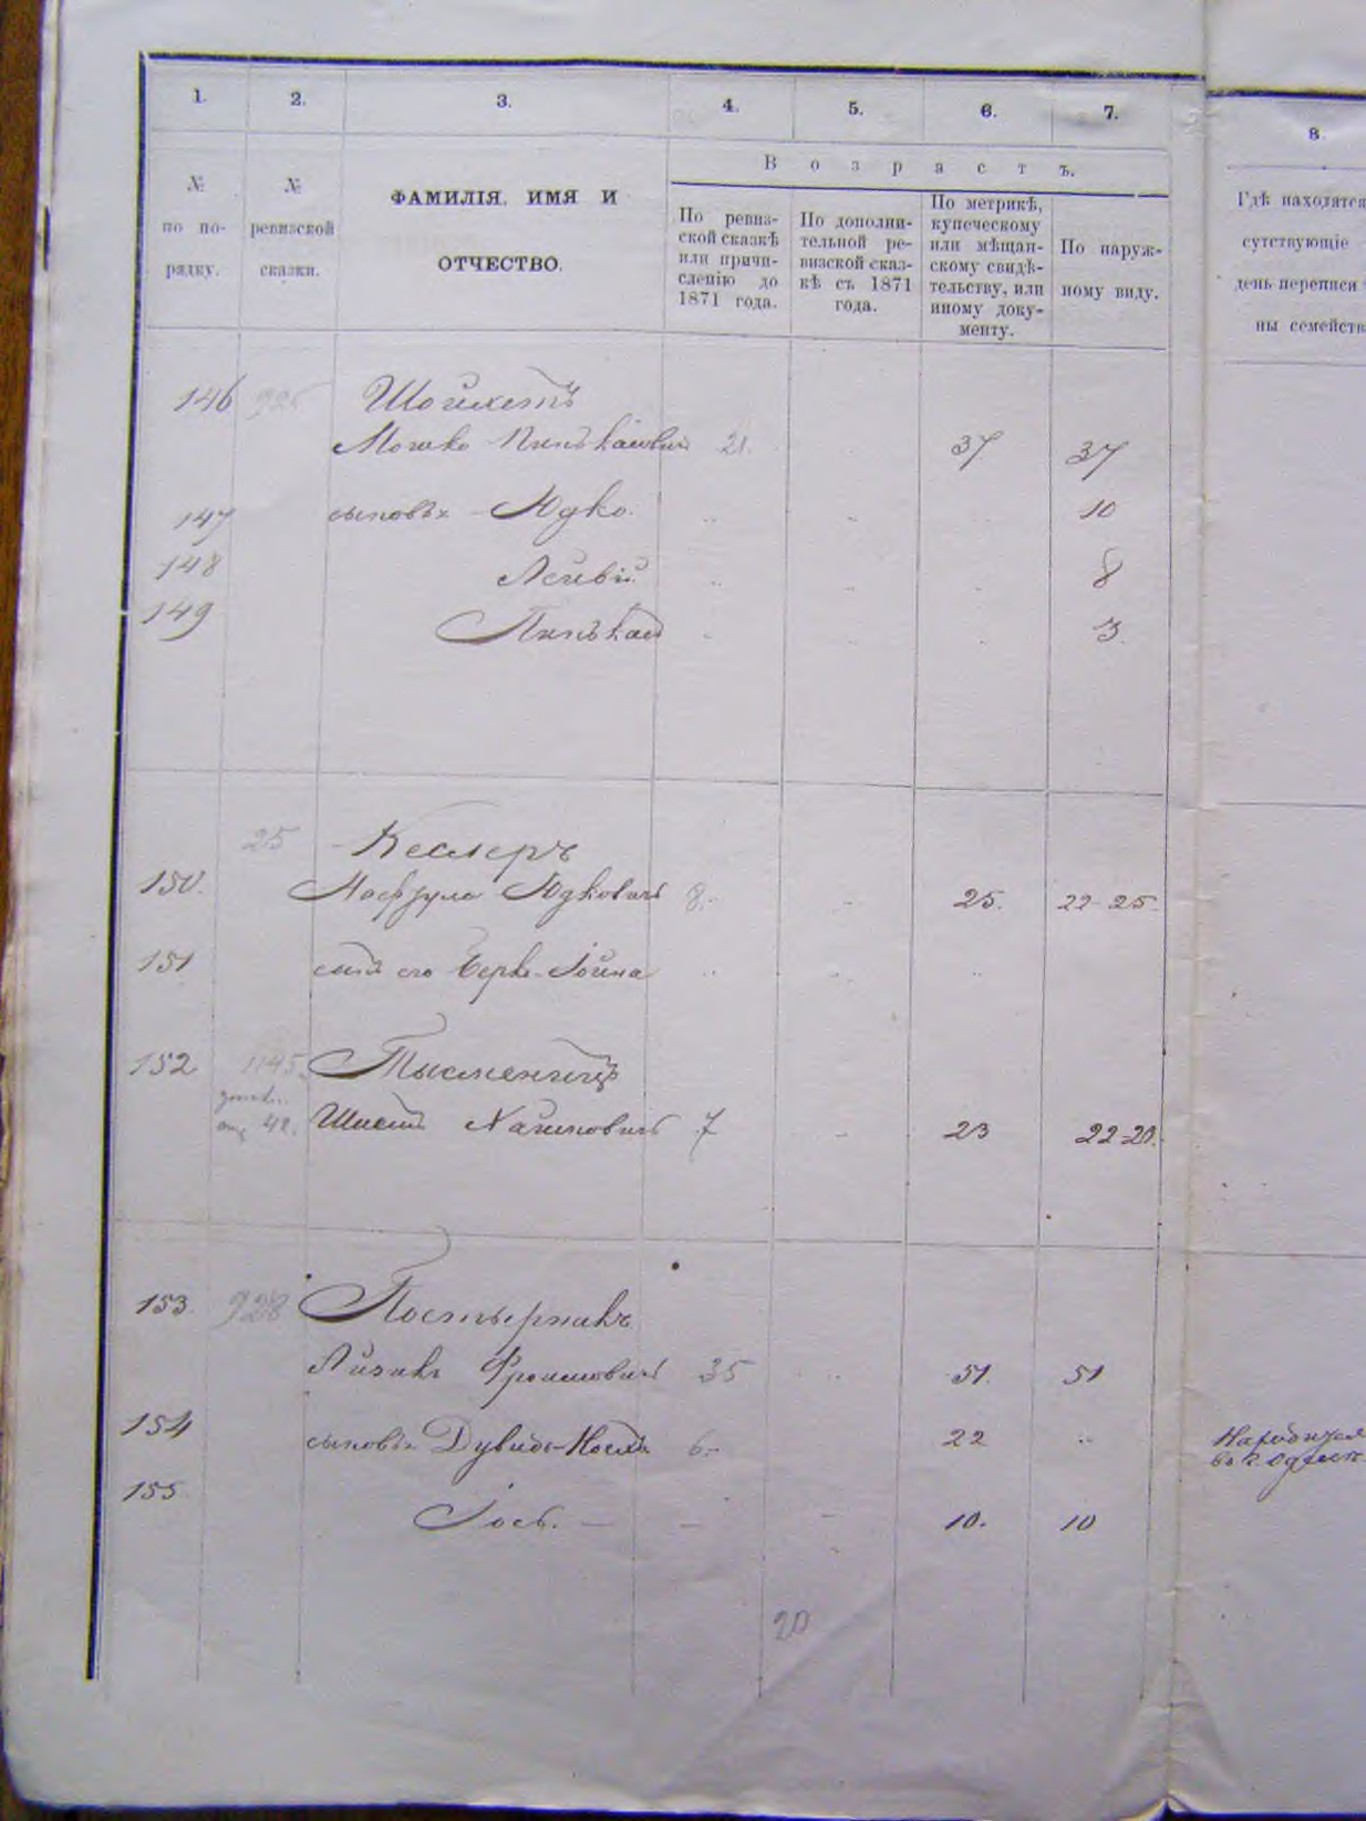 1. 2. 3. 4. 5. 6. 7. 8.
В о з р а с т ъ.
№ по по- рядку.
№ ревизской сказки.
ФАМИЛІЯ, ИМЯ И
ОТЧЕСТВО.
По ревиз-
ской сказкѣ
или причи-
сленію до
1871 года.
По дополни-
тельной ре-
визской сказ-
кѣ съ 1871
года.
По метрикѣ,
купеческому
или мѣщан-
скому свидѣ-
тельству, или
иному доку-
менту.
По наруж-
ному виду.
Гдѣ находятся
сутствующіе
день переписи
ны семейств
146 925 Шойхетъ
Мошко Пинькасовичъ 21. 37 37
147 сыновья Юдко 10
148 Лейвій 8
149 Пинькас 3
25 Кеслеръ
150. Юдковичъ 8. 25. 22-25
151 его Берко-Іойна
152 1145 Тысменицъ
42. Хаимовичъ 7 23 22-20.
153. 928 Постернакъ
Айзикъ Фроимовичъ 35 51. 51
154 сыновья Дувидъ-Іосель 6. 22
155 Іось. — — 10. 10
Находится
въ г. Одессѣ
20